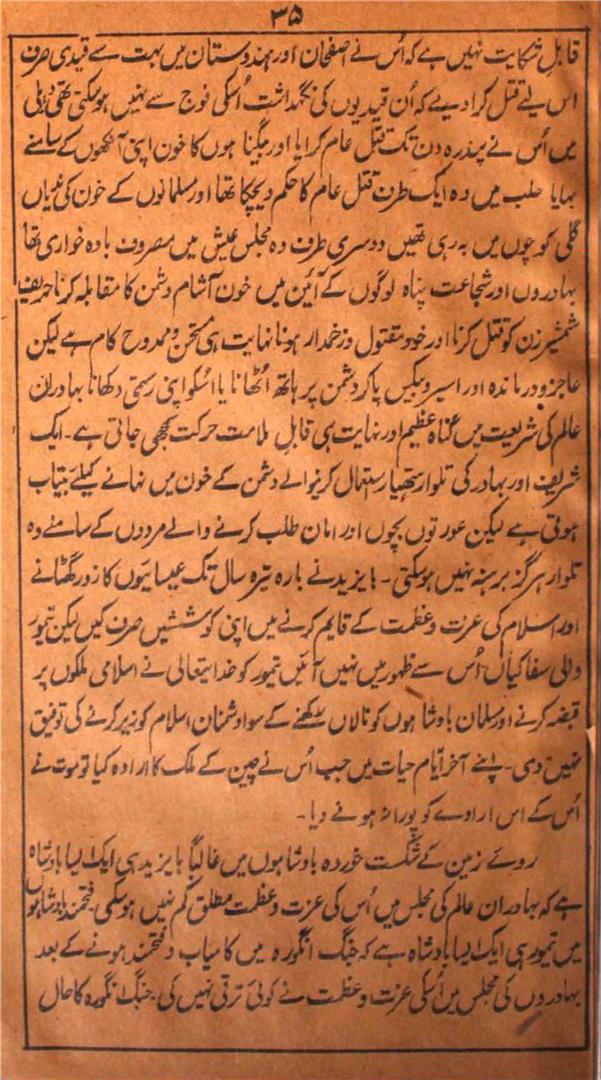 ۳۵
قابلِ شکایت نہیں ہے کہ اُس نے اصفہان اور ہندوستان میں بہت سے قیدی صرف
اس لیے قتل کرا دیے کہ اُن قیدیوں کی نگہداشت اُسکی فوج سے نہیں ہوسکتی تھی دہلی
میں اُس نے پندرہ دن تک قتل عام کرایا اور بیگنا ہوں کا خون اپنی آنکھوں کے سامنے
بہایا حلب میں وہ ایک طرف قتل عام کا حکم دیچکا تھا اور مسلمانوں کے خون کی ندیاں
گلی کوچوں میں بہ رہی تھیں دوسری طرف وہ مجلس عیش میں مصروف بادہ خواری تھا
بہادروں اور شجاعت پناہ لوگوں کے آئین میں خون آشام دشمن کا مقابلہ کرنا حریف
شمشیر زن کو قتل کرنا اور خود مقتول و زخمدار ہونا نہایت ہی مستحسن و ممدوح کام ہے لیکن
عاجز و درماندہ اور اسیر و بیکس پاکر دشمن پر ہاتھ اُٹھانا یا اُسکو اپنی رستمی دکھانا بہادران
عالم کی شریعت میں گناہ عظیم اور نہایت ہی قابلِ ملامت حرکت سمجھی جاتی ہے۔ ایک
شریف اور بہادر کی تلوار ہتھیار ستعمال کرنیوالے دشمن کے خون میں نہانے کیلئے بیتاب
ہوتی ہے لیکن عورتوں بچوں اور امان طلب کرنے والے مردوں کے سامنے وہ
تلوار ہرگز برہنہ نہیں ہوسکتی۔ بایزید نے بارہ تیرہ سال تک عیسائیوں کا زور گھٹانے
اور اسلام کی عزت و عظمت کے قایم کرنے میں اپنی کوششیں صرف کیں لیکن تیمور
والی سفاکیاں اُس سے ظہور میں نہیں آئیں تیمور کو خدایتعالی نے اسلامی ملکوں پر
قبضہ کرنے اور مسلمان بادشاہوں کو نالاں رکھنے کے سوا دشمنان اسلام کو زیر کرنے کی توفیق
نہیں دی۔ اپنے آخر ایام حیات میں جب اُس نے چین کے ملک کا ارادہ کیا تو موت نے
اُس کے اس ارادے کو پورا نہ ہونے دیا۔
روئے زمین کے شکست خوردہ بادشاہوں میں غالباً بایزید ہی ایک ایسا بادشاہ
ہے کہ بہادران عالم کی مجلس میں اُس کی عزت و عظمت مطلق کم نہیں ہوسکی۔ فتحمند بادشاہوں
میں تیمور ہی ایک ایسا بادشاہ ہے کہ جنگ انگورہ میں کامیاب و فتحمند ہونے کے بعد
بہادروں کی مجلس میں اُسکی عزت و عظمت نے کوئی ترقی نہیں کی۔ جنگ انگورہ کا حال